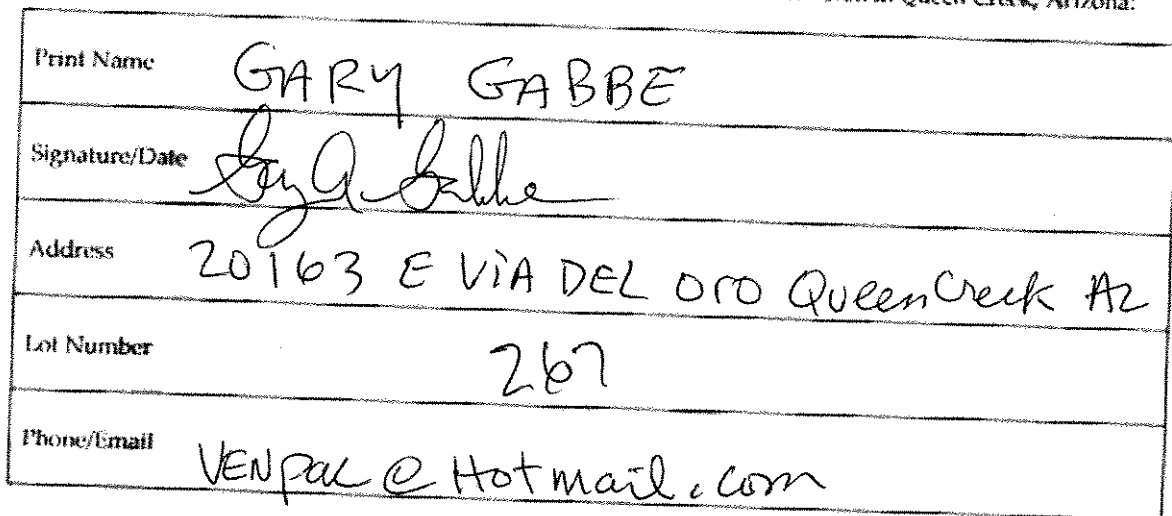 Queen Creek, Arizona:
Print Name GARY GABBE
Signature/Date Gary A. Gabbe
Address 20163 E VIA DEL ORO Queen Creek AZ
Lot Number 267
Phone/Email VENPAC @ Hotmail.com